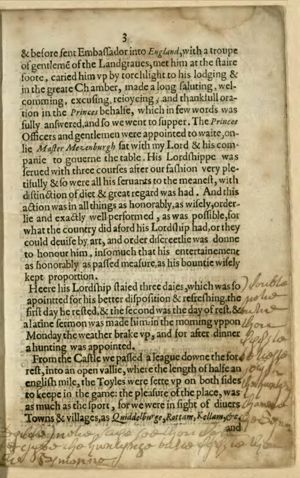 3
& before sent Embassador into England, with a troupe
of gentlemē of the Landgraues, met him at the staire
foote, caried him vp by torchlight to his lodging &
in the greate Chamber, made a long saluting, wel-
comming, excusing, reioycing, and thankfull ora-
tion in the Princes behalfe, which in few words was
fully answered, and so we went to supper. The Princes
Officers and gentlemen were appointed to waite, on-
lie Master Merenburgh sat with my Lord & his com-
panie to gouerne the table. His Lordshippe was
serued with three courses after our fashion very ple-
tifully & so were all his seruants to the meanest, with
distinction of diet & great regard was had. And this
action was in all things as honorably, as wisely, order-
lie and exactly well performed, as was possible, for
what the country did aford his Lordship had, or they
could deuise by art, and order discreetlie was donne
to honour him, insomuch that his entertainement
as honorably as passed measure, as his bountie wisely
kept proportion.
Heere his Lordship staied three daies, which was so
apointted for his better disposition & refreshing, the
first day he rested, & the second was the day of rest, &
a latine sermon was made him in the morning vppon
Monday the weather brake vp, and for after dinner
a hunting was appointed.
From the Castle we passed a league downe the for
rest, into an open vallie, where the length of halfe an
english mile, the Toyles were sette vp on both sides
to keepe in the game: the pleasure of the place, was
as much as the sport, for we were in sight of diuers
Towns & villages, as Quidelburge, Rottam, Kellam, &c.
and